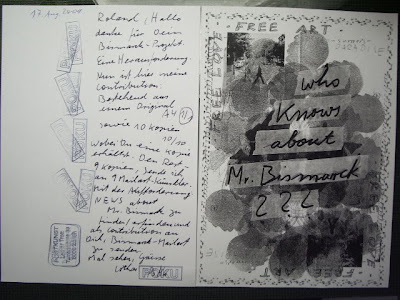 17. Aug.
Roland, Hallo
danke für Dein
Bismarck-Projekt.
Eine Herausforderung
Nun ist hier meine
Contribution:
Bestehend aus
einem Original
A4
sowie 10 Kopien
10/10
wobei Du eine Kopie
erhältst. Den Rest
9 Kopien, sende ich
an 9 Mailart-Künstler,
Mit der Aufforderung
NEWS about
Mr. Bismarck zu
finden/erfinden und
als Contribution an
Dich, Bismarck-Mailart
zu senden
Mal sehen, Grüsse
Lothar
FREE LOVE
- FREE ART -
who
Knows
about
Mr. Bismarck
???
FREE ART